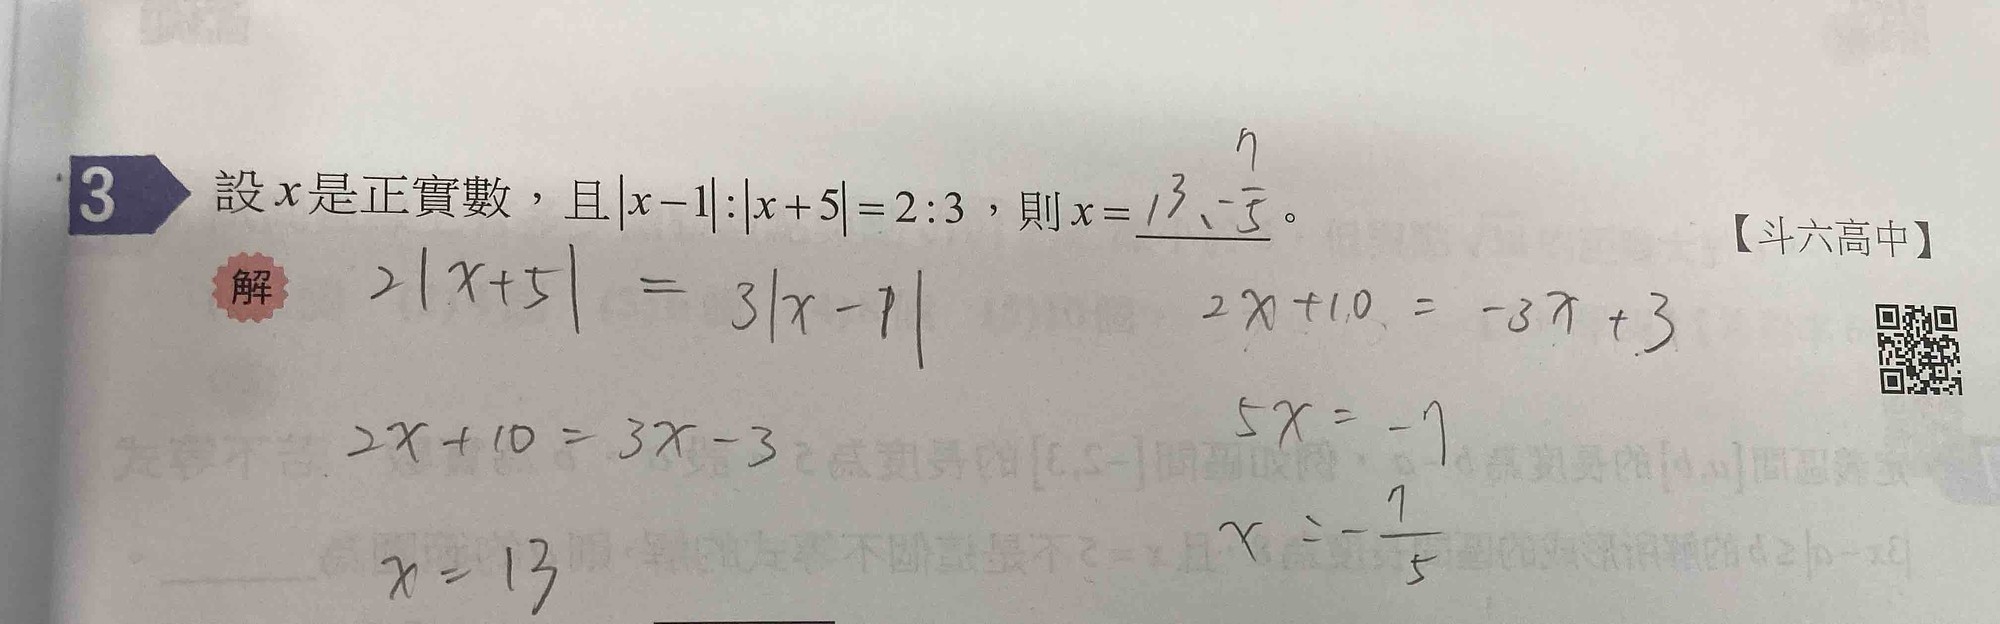 3 設 x 是正實數，且 |x−1|:|x+5|=2:3，則 x= 13、-7/5 。
【斗六高中】
解 2|x+5| = 3|x-1|
2x+10 = -3x+3
2x+10 = 3x-3
5x = -7
x = 13
x = -7/5